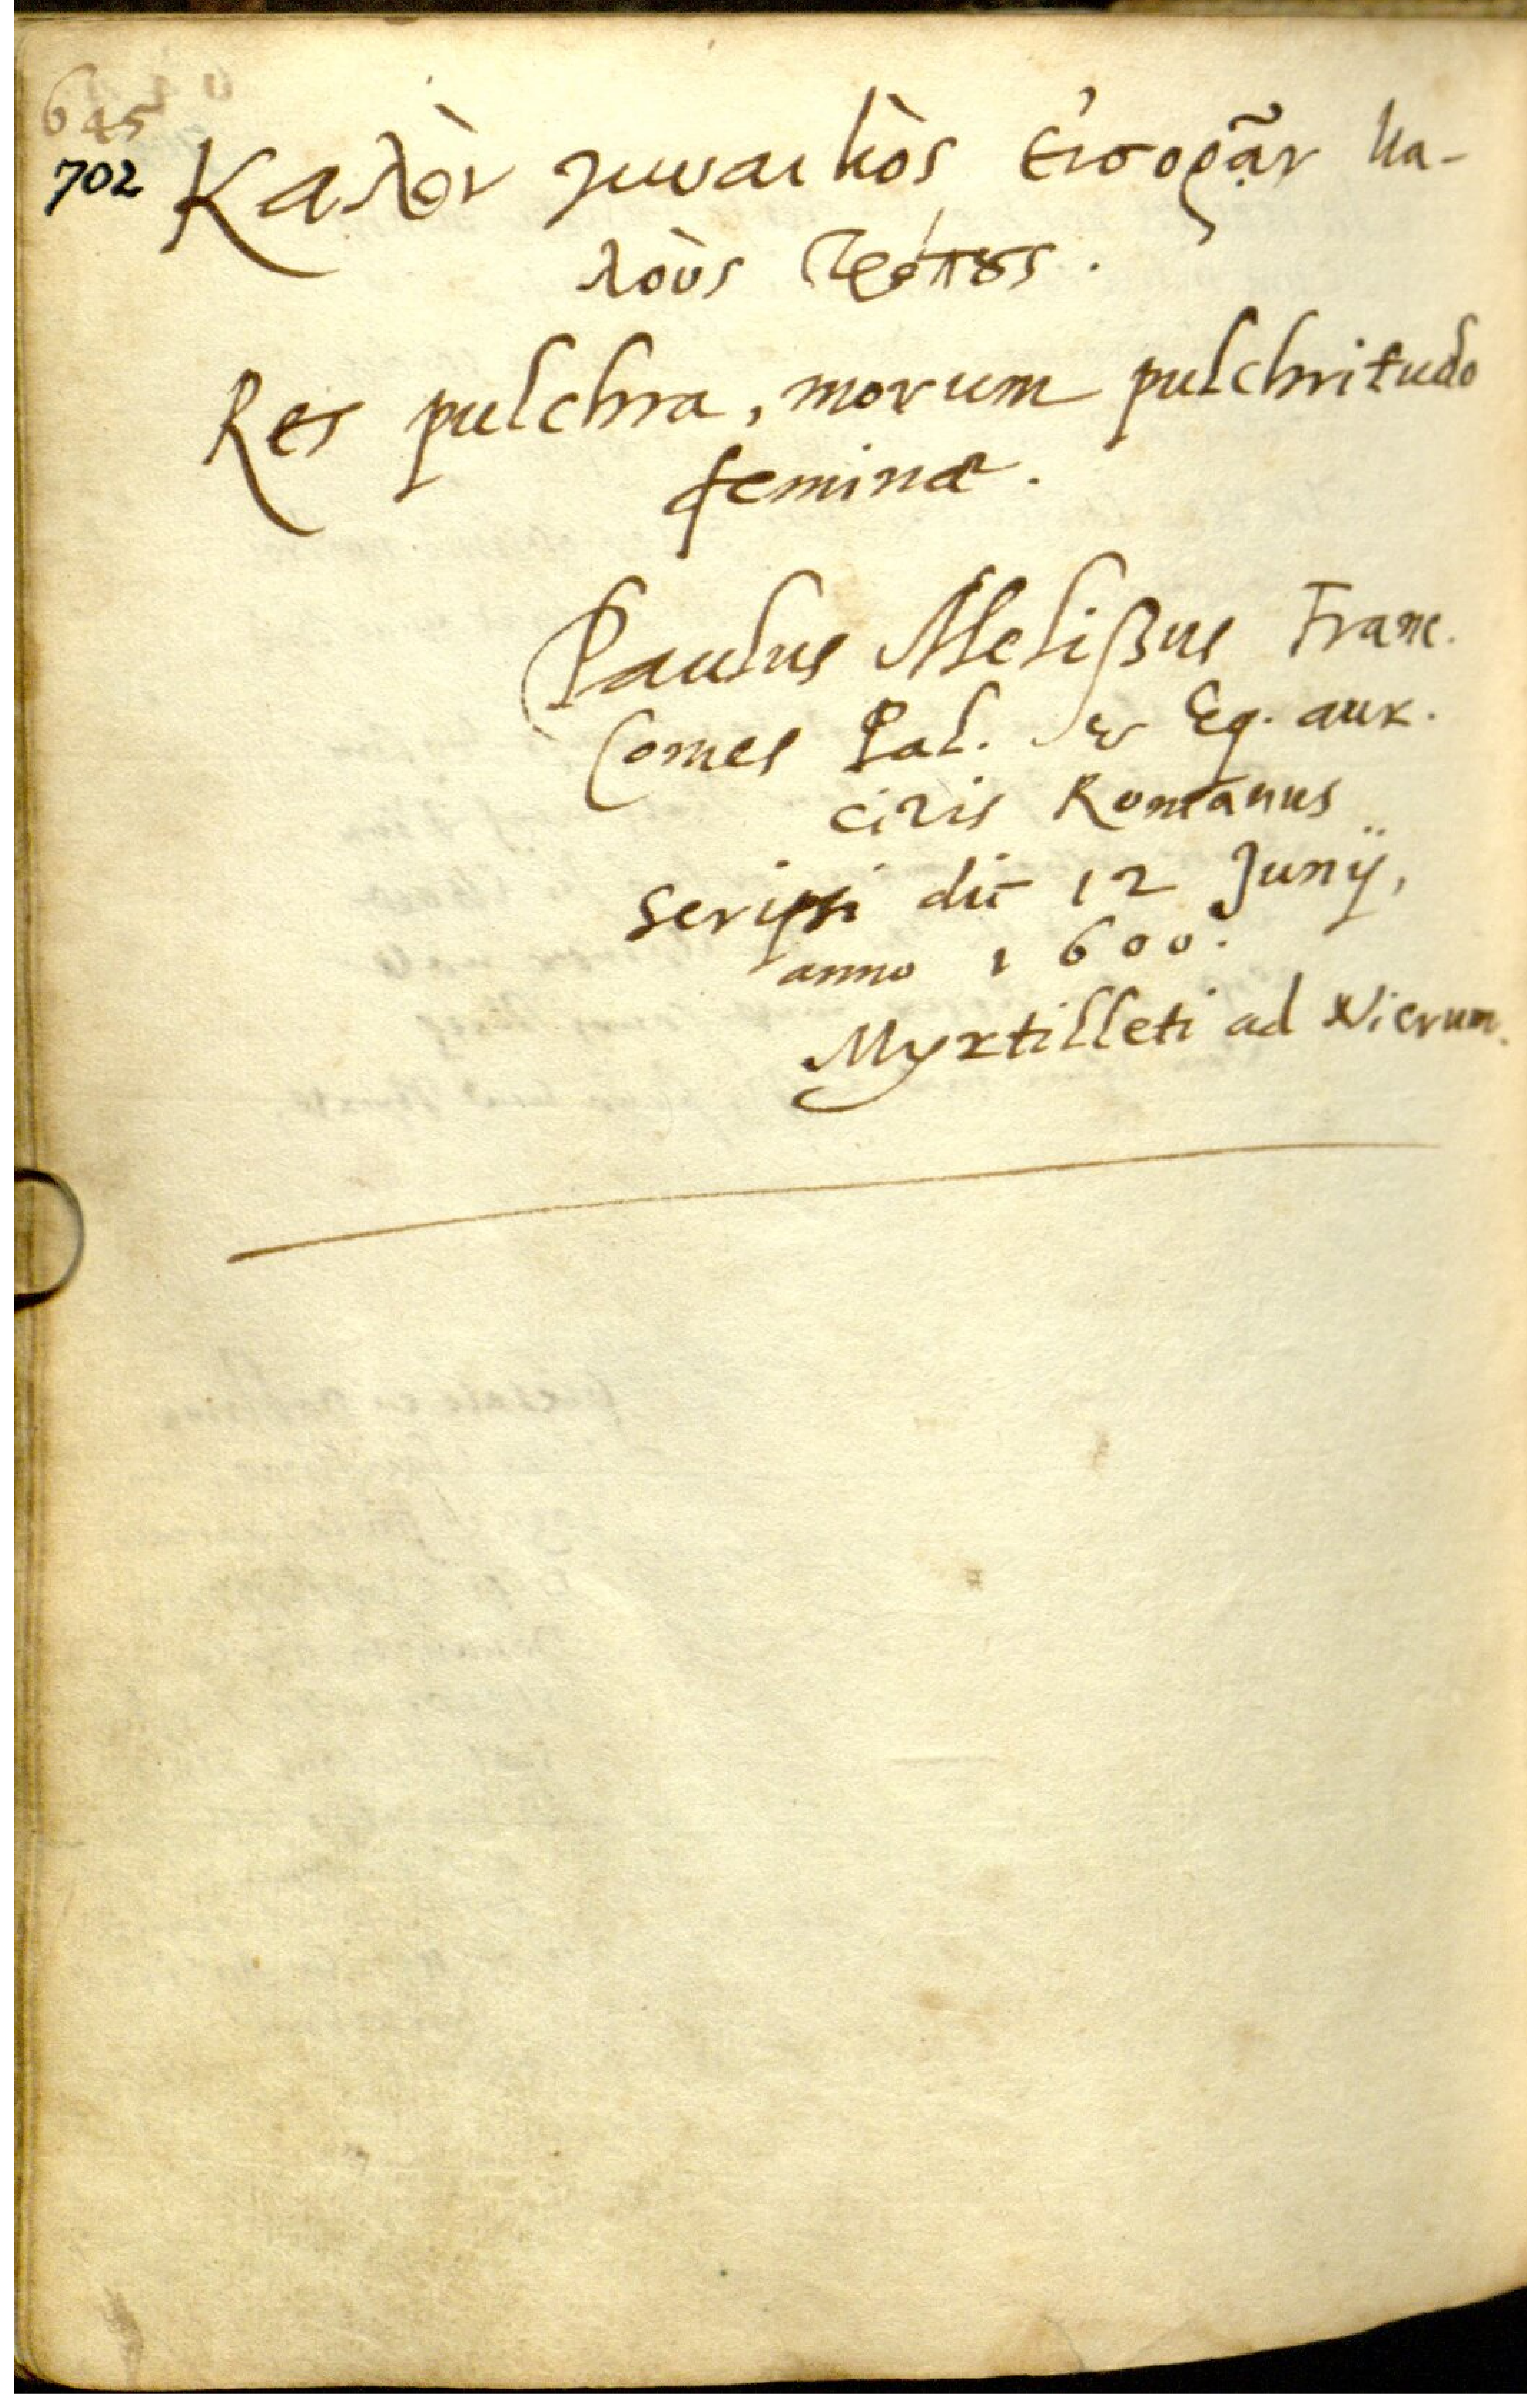 645
702
Καλὸν γυναικὸς εἰσορᾷν κα-
λοὺς τρόπους.
Res pulchra, morum pulchritudo
feminæ.
Paulus Melißus Franc.
Comes Pal. & Eq. aur.
civis Romanus
scripsi die 12 Junij,
anno 1600.
Myrtilleti ad Nicrum.